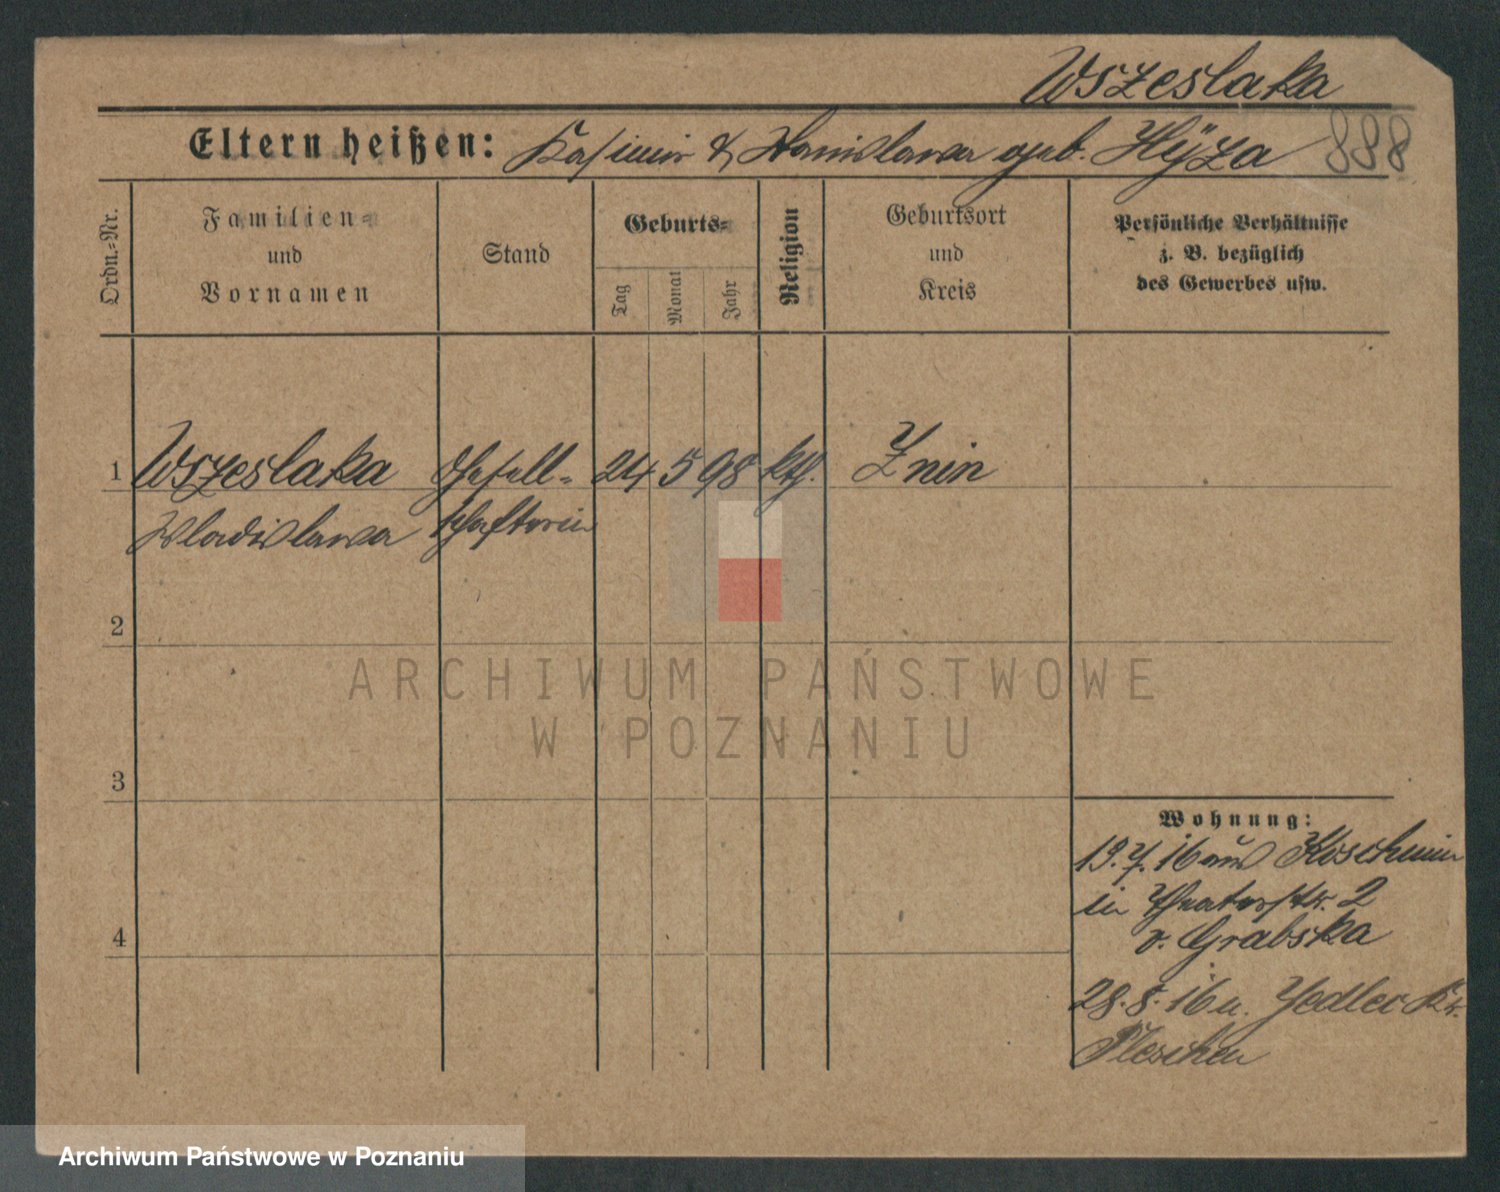 Wszeslaka
Eltern heißen: Kasimir & Stanislawa geb. Hÿza 888
Ordn.=Nr.
Familien= und Vornamen
Stand
Geburts=
Tag
Monat
Jahr
Religion
Geburtsort und Kreis
Persönliche Verhältnisse
z. B. bezüglich
des Gewerbes usw.
1 Wszeslaka Gesell= 24 5 98 kth. Znin
Wladislawa schafterin
2
3
4
Wohnung:
19.7.16 aus Koschmin
in Theaterstr. 2
v. Grabska
28.8.16 n. Jedlec Kr.
Pleschen
ARCHIWUM PAŃSTWOWE
W POZNANIU
Archiwum Państwowe w Poznaniu